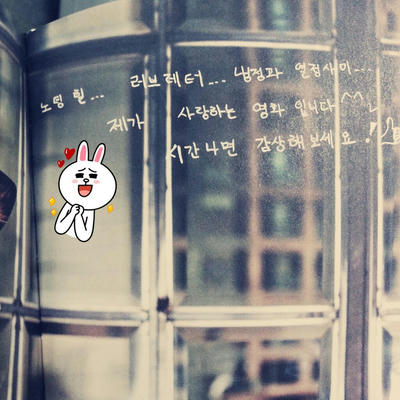 노팅 힐... 러브레터... 냉정과 열정사이...
제가 사랑하는 영화입니다^^
시간나면 감상해보세요!